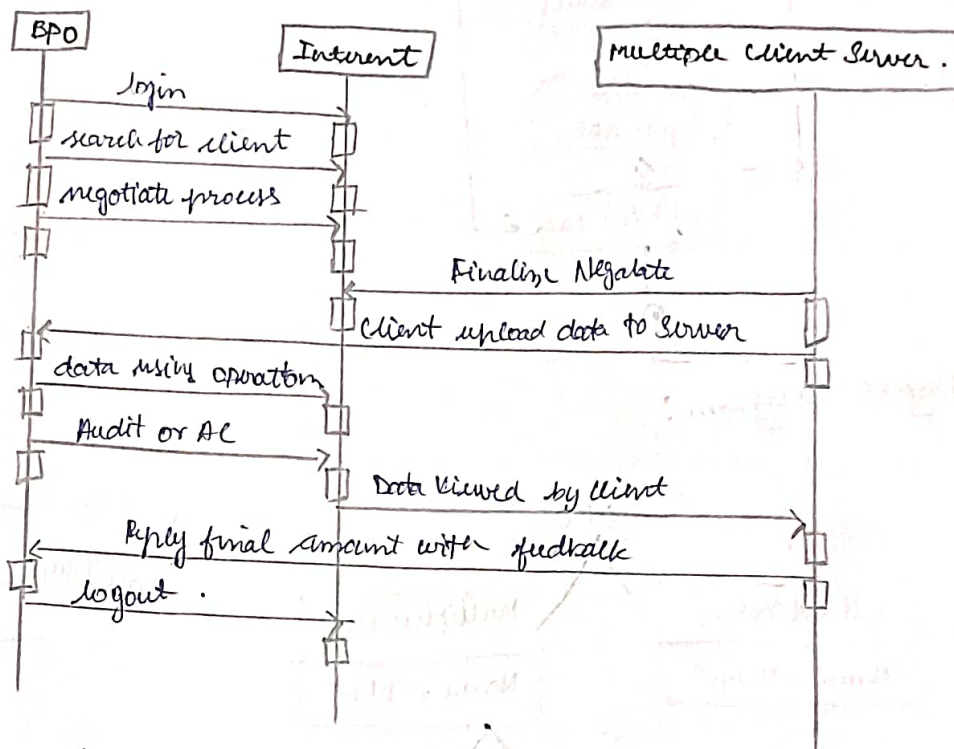 BPO
Interent
Multiple Client Server.
login
search for client
negotiate process
Finalize Negabate
Client upload data to Server
data using operation
Audit or AC
Data Viewed by client
Reply final amount with fudback
logout.